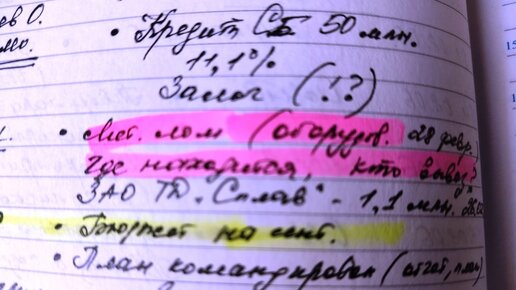 ев О.
• Кредит СБ 50 млн.
11,1%
Залог (!?)
• Мет. лом (оборудов. 28 февр.
где находится, кто вывез?
ЗАО ТД "Сплав" - 1,1 млн.
• Бюджет на сент.
• План командировок (отчёт, план)